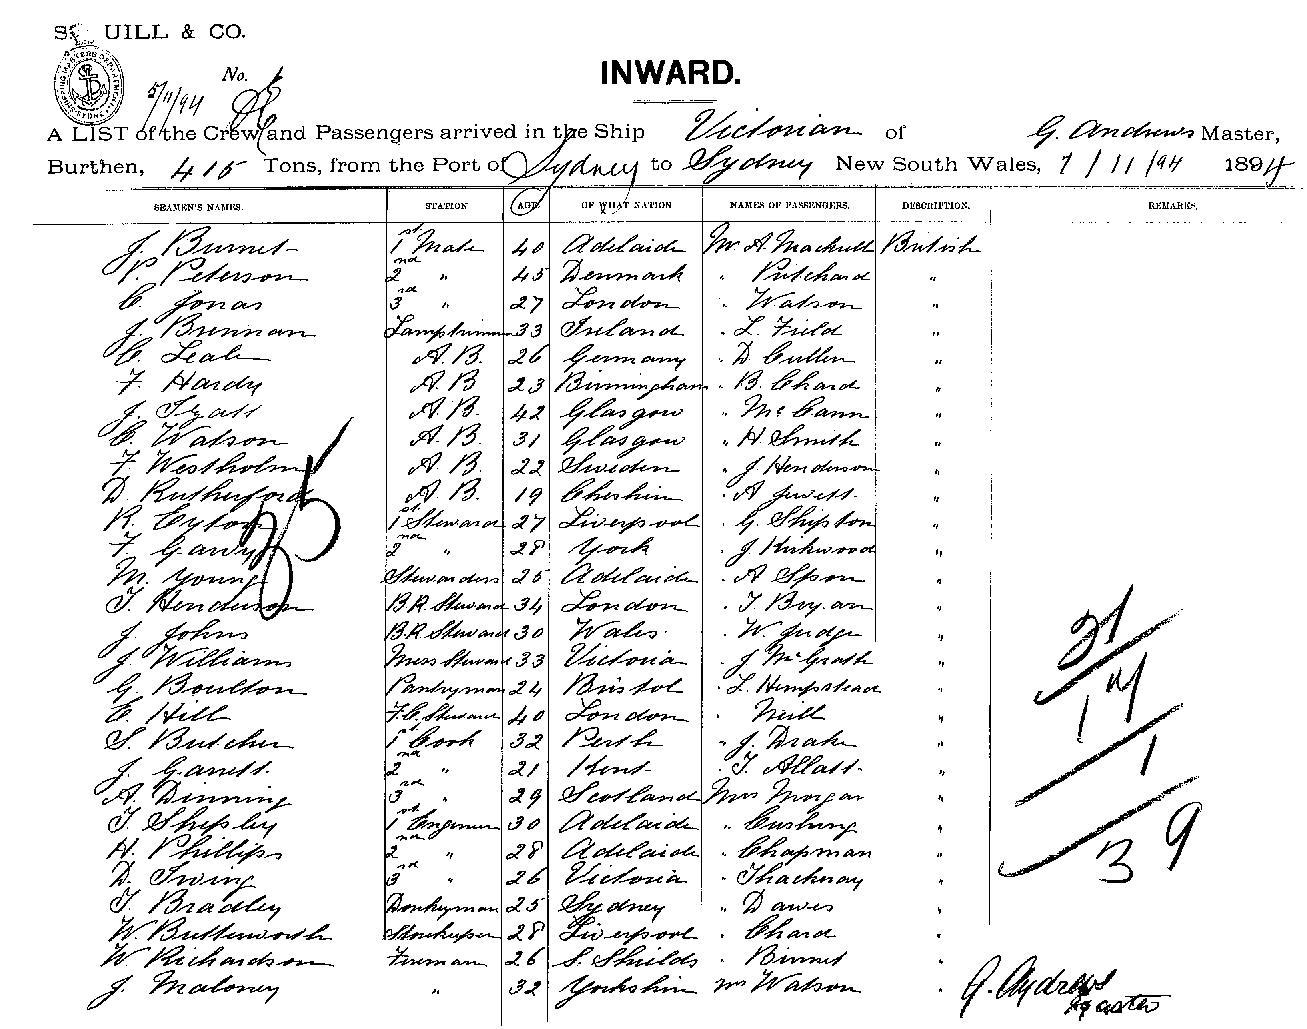 UILL & CO.
No.
5/11/94
INWARD.
A LIST of the Crew and Passengers arrived in the Ship Victorian of G. Andrews Master,
Burthen, 415 Tons, from the Port of Sydney to Sydney New South Wales, 7/11/94 1894
SEAMEN'S NAMES. STATION AGE OF WHAT NATION NAMES OF PASSENGERS. DESCRIPTION. REMARKS.
J. Burnet 1st Mate 40 Adelaide Mr. A. Mackrell British
P. Peterson 2nd " 45 Denmark " Pritchard "
C. Jonas 3rd " 27 London " Watson "
J. Brennan Lamptrimmer 33 Ireland " L. Field "
C. Leale A. B. 26 Germany " D. Cullen "
F. Hardy A. B 23 Birmingham " B. Chard "
J. Lyall A. B. 42 Glasgow " McCann "
C. Watson A. B. 31 Glasgow " H Smith "
F. Westholm A. B. 22 Sweden " J Henderson "
D. Rutherford A. B. 19 Cheshire " A Jewett "
R. Eyton 1st Steward 27 Liverpool " G. Shipton "
F. 2nd " 28 York " J Kirkwood "
M. Young Stewardess 25 Adelaide " A "
T. Henderson B.R. Steward 34 London " T. Bryan "
J. Johns B.R Steward 30 Wales " W. Judge "
J. Williams Mess Steward 33 Victoria " J McGrath "
G. Boulton Pantryman 24 Bristol " L. Hempstead "
E. Hill F.C. Steward 40 London " Neill "
S. Butcher 1st Cook 32 Perth " J. Drake "
J. Garrett 2nd " 21 Kent " T. Allatt "
A. Dinning 3rd " 29 Scotland Mrs Morgan "
T. Shepley 1st Engineer 30 Adelaide " Cushing "
H. Phillips 2nd " 28 Adelaide " Chapman "
D. Irving 3rd " 26 Victoria " Thackeray "
T. Bradley Donkeyman 25 Sydney " Dawes "
W. Butterworth Storekeeper 28 Liverpool " Chard "
W Richardson Fireman 26 S. Shields " Binnet "
J. Maloney " 32 Yorkshire Mr Watson "
35
21
17
1
39
G. Andrews
Master